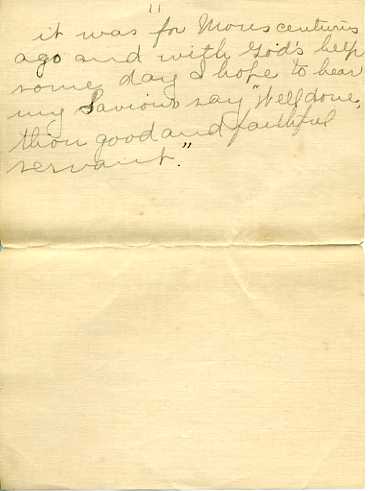 11
it was for Moses centuries
ago and with God's help
some day I hope to hear
my Saviour say "Well done,
thou good and faithful
servant."